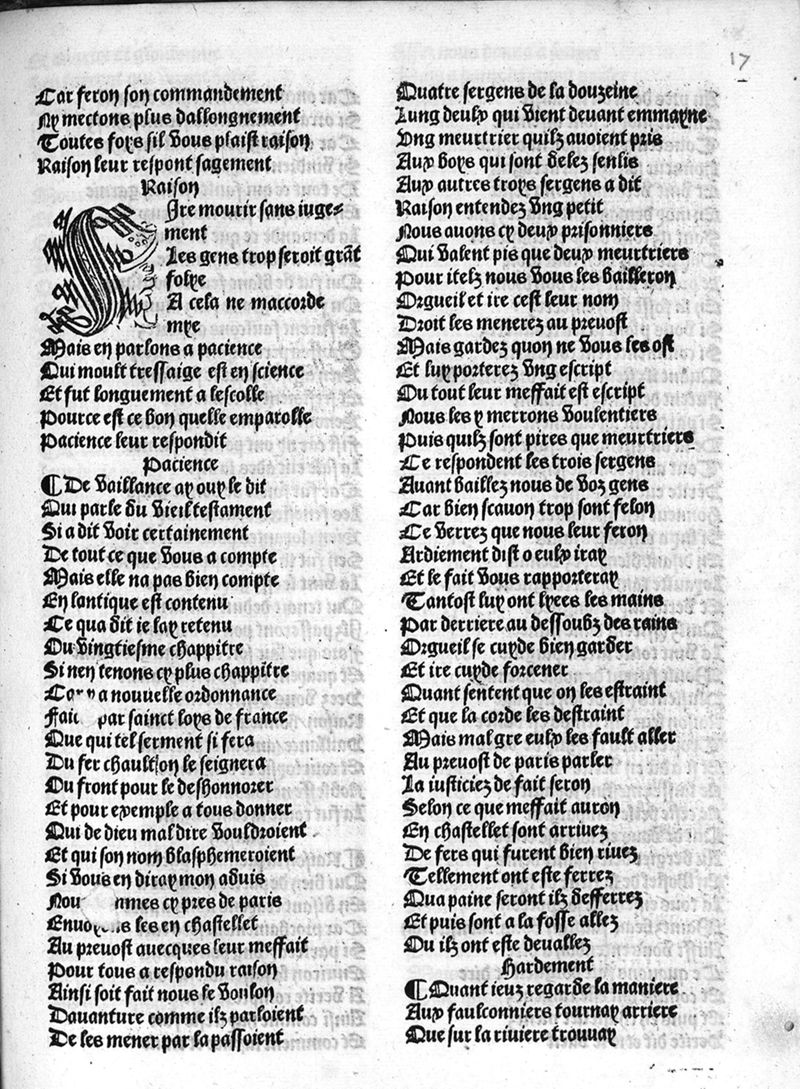 17
Car feron son commandement
Ny mectons plus dallongnement
Toutes foys sil vous plaist raison
Raison leur respont sagement
Raison
Fire mourir sans iuge-
ment
Les gens trop seroit grāt
folye
A cela ne maccorde
mye
Mais en parlons a pacience
Qui moult tressaige est en science
Et fut longuement a lescolle
Pource est ce bon quelle emparolle
Pacience leur respondit
Pacience
¶ De vaillance ay ouy le dit
Qui parle du vieil testament
Si a dit voir certainement
De tout ce que vous a compte
Mais elle na pas bien compte
En lantique est contenu
Ce qua dit ie lay retenu
Ou vingtiesme chappitre
Si nen tenons cy plus chappitre
Car y a nouuelle ordonnance
Fai par sainct loys de france
Que qui tel serment si fera
Du fer chault on le seignera
Ou front pour le deshonnorer
Et pour exemple a tous donner
Qui de dieu mal dire vouldroient
Et qui son nom blasphemeroient
Si vous en diray mon aduis
Nou mmes cy pres de paris
Enuoy les en chastellet
Au preuost auecques leur meffait
Pour tous a respondu raison
Ainsi soit fait nous le voulon
Dauanture comme ilz parloient
De les mener par la passoient
Quatre sergens de la douzeine
Lung deulx qui vient deuant emmayne
Ung meurtrier quilz auoient pris
Aux boys qui sont delez senlis
Aux autres troys sergens a dit
Raison entendez vng petit
Nous auons cy deux prisonniers
Qui valent pis que deux meurtriers
Pour itelz nous vous les bailleron
Orgueil et ire cest leur nom
Droit les menerez au preuost
Mais gardez quon ne vous les ost
Et luy porterez vng escript
Ou tout leur meffait est escript
Nous les y merrons voulentiers
Puis quilz sont pires que meurtriers
Ce respondent les trois sergens
Auant baillez nous de voz gens
Car bien scauon trop sont felon
Ce verrez que nous leur feron
Ardiement dist o eulx iray
Et le fait vous rapporteray
Tantost luy ont lyees les mains
Par derriere au dessoubz des rains
Orgueil se cuyde bien garder
Et ire cuyde forcener
Quant sentent que on les estraint
Et que la corde les destraint
Mais mal gre eulx les fault aller
Au preuost de paris parler
La iusticiez de fait seron
Selon ce que meffait auron
En chastellet sont arriuez
De fers qui furent bien riuez
Tellement ont este ferrez
Qua paine seront ilz defferrez
Et puis sont a la fosse allez
Ou ilz ont este deuallez
Hardement
¶ Quant ieuz regarde la maniere
Aux faulconniers tournay arriere
Que sur la riuiere trouuay